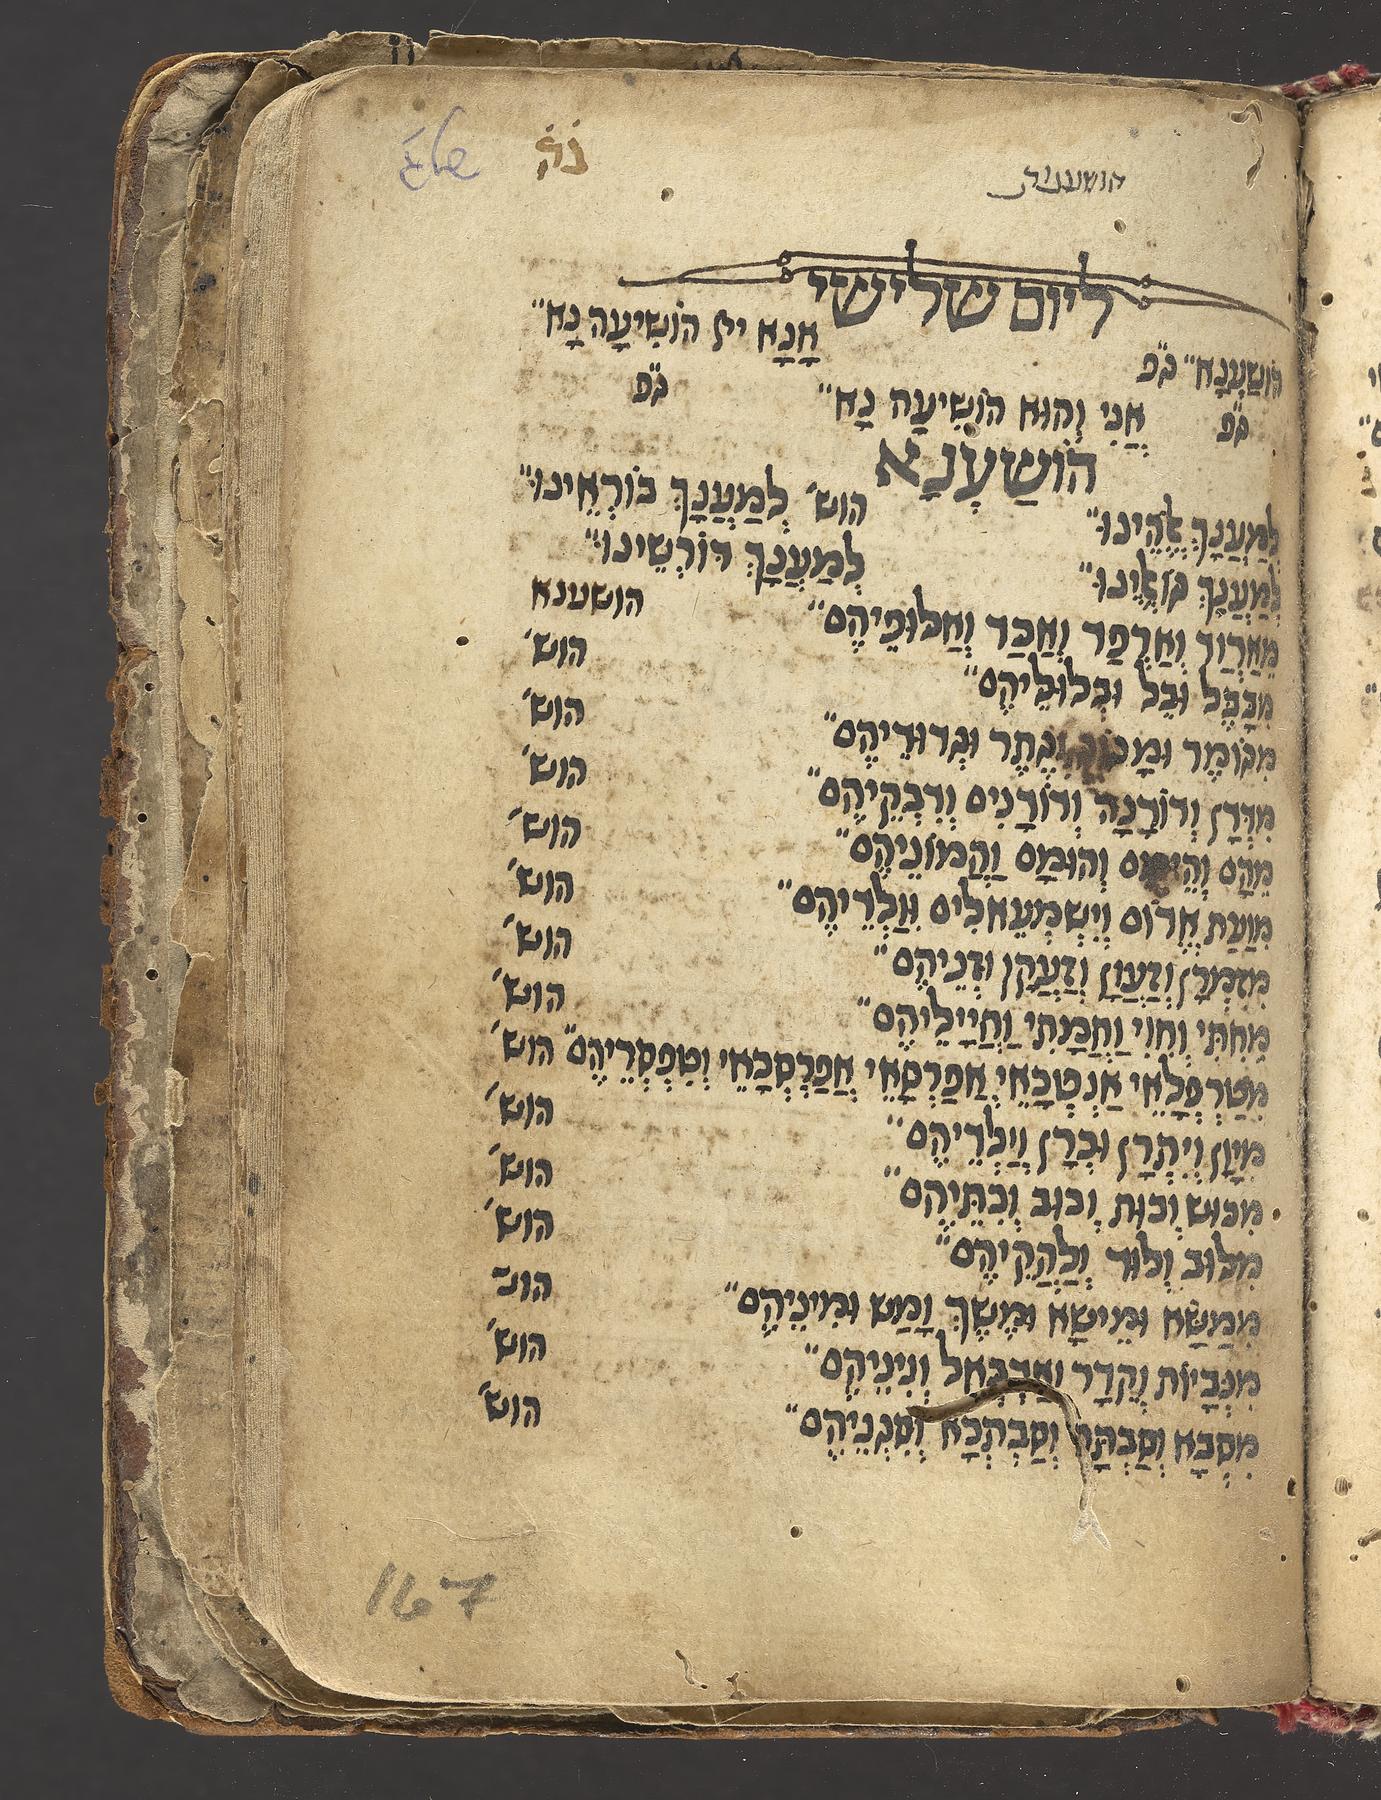 הושענות
ליום שלישי
אָנָא יי הוֹשִׁיעָה נָא״
הוֹשַׁעְנָא״ ג״פ
אֲנִי וְהוּא הוֹשִׁיעָה נָא״ ג״פ
ג״פ
הוֹשַׁעְנָא
לְמַעֲנָךְ אֱלֹהֵינוּ״ הוש׳ לְמַעֲנָךְ בּוֹרְאֵינוּ״
לְמַעֲנָךְ גּוֹאֲלֵינוּ״ לְמַעֲנָךְ דּוֹרְשֵׁינוּ״
מֵאַרְוַד וְאַרְפַּד וְאַכַּד וְאַלּוּפֵיהֶם״ הושענא
מִבָּבֶל וּבֵל וּבְלוּלֵיהֶם״ הוש׳
מִגּוֹמֶר וּמָגוֹג וְגֶתֶר וּגְדוּדֵיהֶם״ הוש׳
מִדְּדָן וְדוּרָנָה וְדוֹדָנִים וְדִבְקֵיהֶם״ הוש׳
מֵהָם וְהֵימָם וְהוּמָם וַהֲמוֹנֵיהֶם״ הוש׳
מִוַעַת אֱדוֹם וְיִשְׁמְעֵאלִים הוש׳
מִזִּמְרָן וְזַעֲוָן וּזְנֵיהֶם״ הוש׳
מֵחִתִּי וְחִוִּי וַחֲמָתִי וַחֲיָילֵיהֶם״ הוש׳
מִטַּרְפְּלָאֵי אֲפַרְסָאֵי אֲפַרְסְכָאֵי וְטִפְסְרֵיהֶם״ הוש׳
מִיָּוָן וְיִתְרָן וְיַלְדֵיהֶם״ הוש׳
מִכּוּשׁ וְכוּת וְכוּב וְכִתֵּיהֶם״ הוש׳
מִלּוּב וְלוּד וְלַהֲקֵיהֶם״ הוש׳
מִמַּשָּׂא וּמֵישָׁא וּמֶשֶׁךְ וָמַשׁ וּמִינֵיהֶם״ הוש׳
מִנְּבָיוֹת וְקֵדָר וְאַדְבְּאֵל וְנִינֵיהֶם״ הוש׳
מִסְּבָא וְסַבְתָּה וְסַבְתְּכָא וְסִגְנֵיהֶם״ הוש׳
167